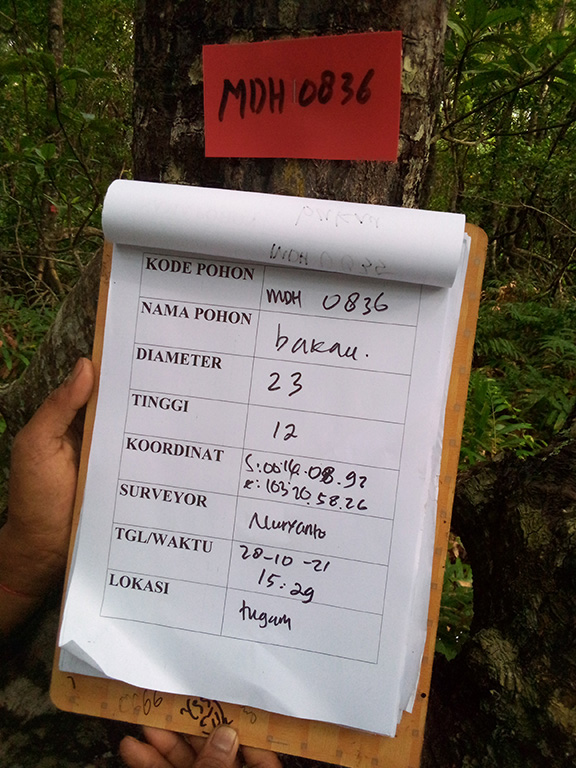 MDH 0836
KODE POHON MDH 0836
NAMA POHON bakau.
DIAMETER 23
TINGGI 12
KOORDINAT S:00.14.08.92
E:103.20.58.26
SURVEYOR Nuryanto
TGL/WAKTU 28-10-21
15:29
LOKASI tugum